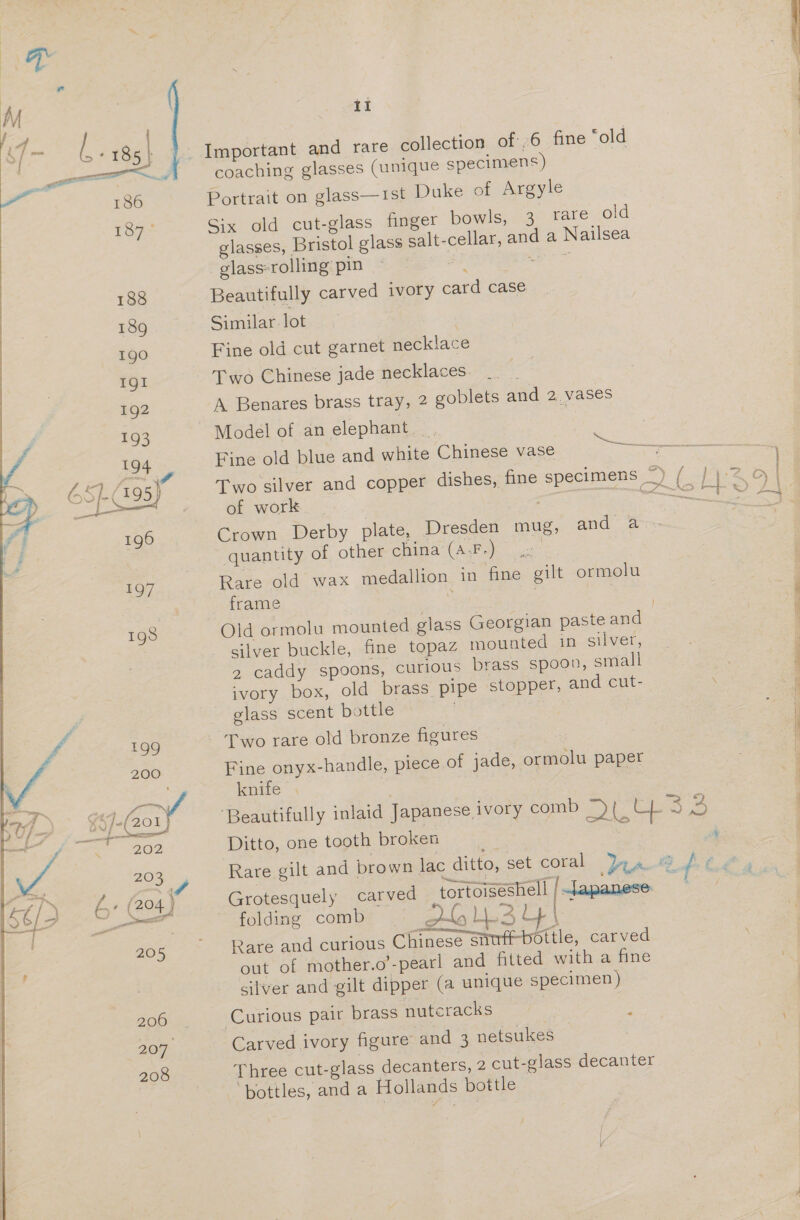 11
185 Important and rare collection of 6 fine old
coaching glasses (unique specimens)
186 Portrait on glass—1st Duke of Argyle
187 Six old cut-glass finger bowls, 3 rare old
glasses, Bristol glass salt-cellar, and a Nailsea
glass-rolling pin
188 Beautifully carved ivory card case
189 Similar lot
190 Fine old cut garnet necklace
191 Two Chinese jade necklaces
192 A Benares brass tray, 2 goblets and 2 vases
193 Model of an elephant
194 Fine old blue and white Chinese vase
65/- (195) Two silver and copper dishes, fine specimens 26439
of work
196 Crown Derby plate, Dresden mug, and a
quantity of other china (A.F.)
197 Rare old wax medallion in fine gilt ormolu
frame
198 Old ormolu mounted glass Georgian paste and
silver buckle, fine topaz mounted in silver,
2 caddy spoons, curious brass spoon, small
ivory box, old brass pipe stopper, and cut-
glass scent bottle
199 Two rare old bronze figures
200 Fine onyx-handle, piece of jade, ormolu paper
knife
(201) Beautifully inlaid Japanese ivory comb 26433
202 Ditto, one tooth broken
203 Rare gilt and brown lac ditto, set coral
56/- 6. (204) Grotesquely carved tortoiseshell Japanese
folding comb 26434
205 Rare and curious Chinese snuff-bottle, carved
out of mother.o'-pearl and fitted with a fine
silver and gilt dipper (a unique specimen)
206 Curious pair brass nutcracks
207 Carved ivory figure and 3 netsukes
208 Three cut-glass decanters, 2 cut-glass decanter
bottles, and a Hollands bottle